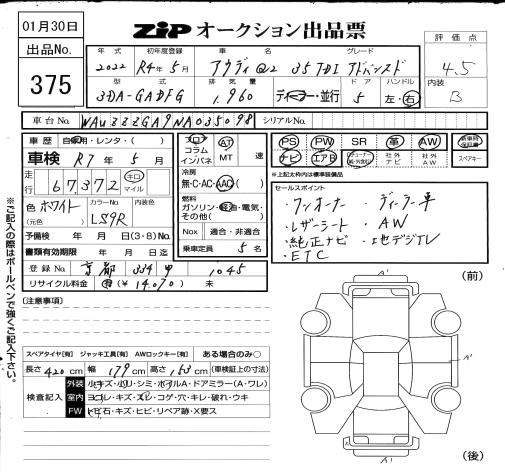 01月30日
ZIP オークション出品票
出品No.
375
年式 初年度登録 車名 グレード
2022 R4年5月 アウディQ2 35TDI アドバンスド
評価点
4.5
型式 排気量 ドア ハンドル
3DA-GADFG 1,960 ディーラー・並行 5 左・右
内装
B
車台No. シリアルNo.
車歴 自家用・レンタ・( )
車検 R7年5月
走行 67,372 キロ マイル
色 ホワイト カラーNo. 内装色
(元色) LS9R
予備検 年 月 日(3・8)No.
書類有効期限 年 月 日
登録No. 京都 334 1045
リサイクル料金 (¥14,070) 未
フロア コラム インパネ AT MT 速
冷房
無・C・AC・AAC( )
燃料
ガソリン・軽油・電気・その他( )
Nox 適合・非適合
乗車定員 5名
PS PW SR 革 AW 新車時保証書
ナビ エアB 社外ナビ 社外AW スペアキー
※上記太枠内は標準装備品
セールスポイント
・ワンオーナー ・ディーラー車
・レザーシート ・AW
・純正ナビ ・地デジTV
・ETC
※ご記入の際はボールペンで強くご記入下さい。
[注意事項]
スペアタイヤ[有] ジャッキ工具[有] AWロックキー[有] ある場合のみ○
長さ420cm 幅179cm 高さ153cm (車検証上の寸法)
検査記入
外装 小キズ・小凹・シミ・ホイルA・ドアミラー(A・ワレ)
室内 ヨゴレ・キズ・スレ・コゲ・穴・キレ・破れ・ウキ
FW トビ石・キズ・ヒビ・リペア跡・X要ス
(前)
(後)